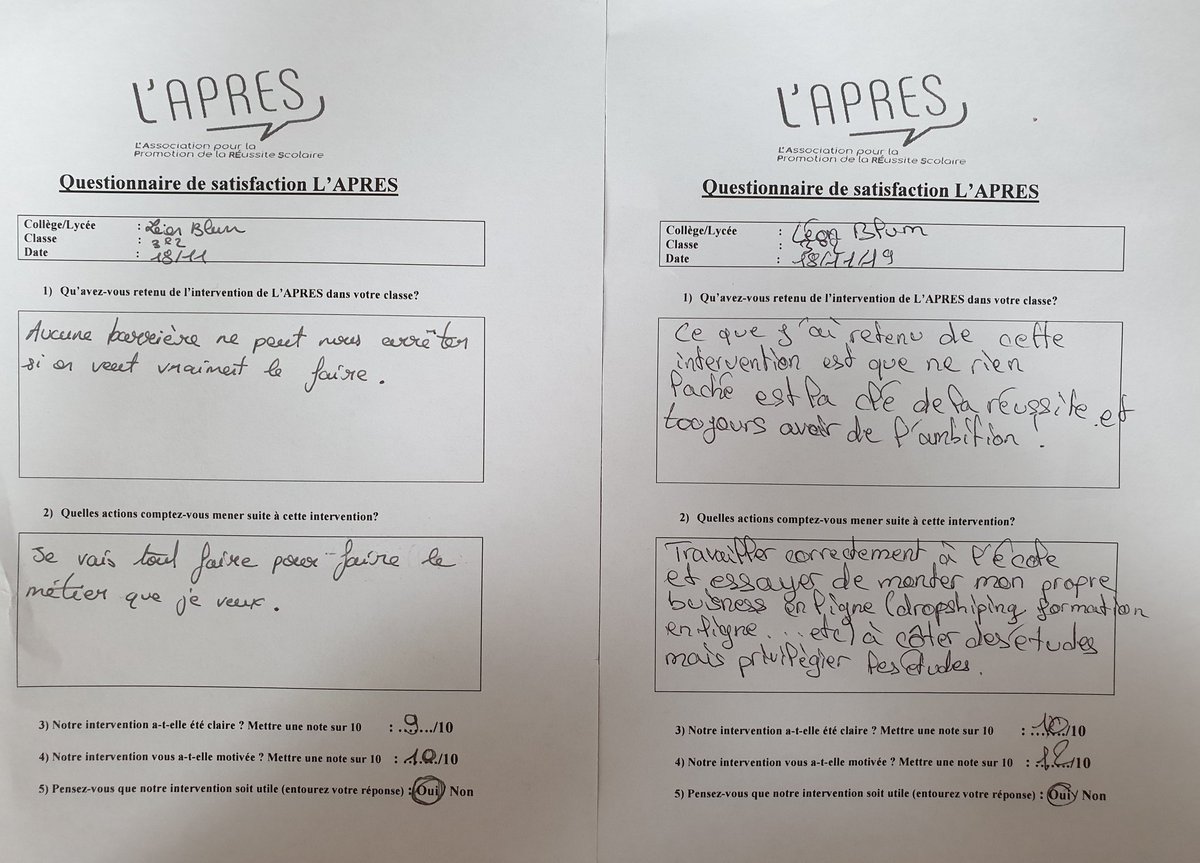 L'APRES
L'Association pour la
Promotion de la REussite Scolaire
Questionnaire de satisfaction L'APRES
Collège/Lycée : Léon Blum
Classe : 3e2
Date : 18/11
1) Qu'avez-vous retenu de l'intervention de L'APRES dans votre classe?
Aucune barrière ne peut nous arrêter
si on veut vraiment le faire.
2) Quelles actions comptez-vous mener suite à cette intervention?
Je vais tout faire pour faire le
métier que je veux.
3) Notre intervention a-t-elle été claire ? Mettre une note sur 10 : ..9.../10
4) Notre intervention vous a-t-elle motivée ? Mettre une note sur 10 : .10./10
5) Pensez-vous que notre intervention soit utile (entourez votre réponse) : Oui/ Non
L'APRES
L'Association pour la
Promotion de la RÉussite Scolaire
Questionnaire de satisfaction L'APRES
Collège/Lycée : Léon Blum
Classe :
Date : 18/11/19
1) Qu'avez-vous retenu de l'intervention de L'APRES dans votre classe?
Ce que j'ai retenu de cette
intervention est que ne rien
laché est la clé de la réussite et
toujours avoir de l'ambition.
2) Quelles actions comptez-vous mener suite à cette intervention?
Travailler correctement à l'école
et essayer de monter mon propre
buisness en ligne (dropshiping formation
en ligne....etc) à côter des études
mais privilégier les études.
3) Notre intervention a-t-elle été claire ? Mettre une note sur 10 : ..10../10
4) Notre intervention vous a-t-elle motivée ? Mettre une note sur 10 : .12../10
5) Pensez-vous que notre intervention soit utile (entourez votre réponse) : Oui/ Non